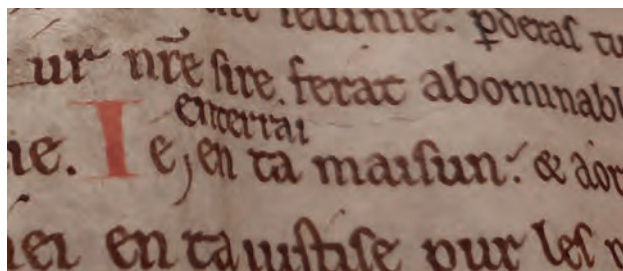 ꝑderaſ tu
ur nr̄e ſire. ferat abominabl
enterrai
ie. Ie, en ta maiſun. & aor
en ta iuſtiſe pur leſ